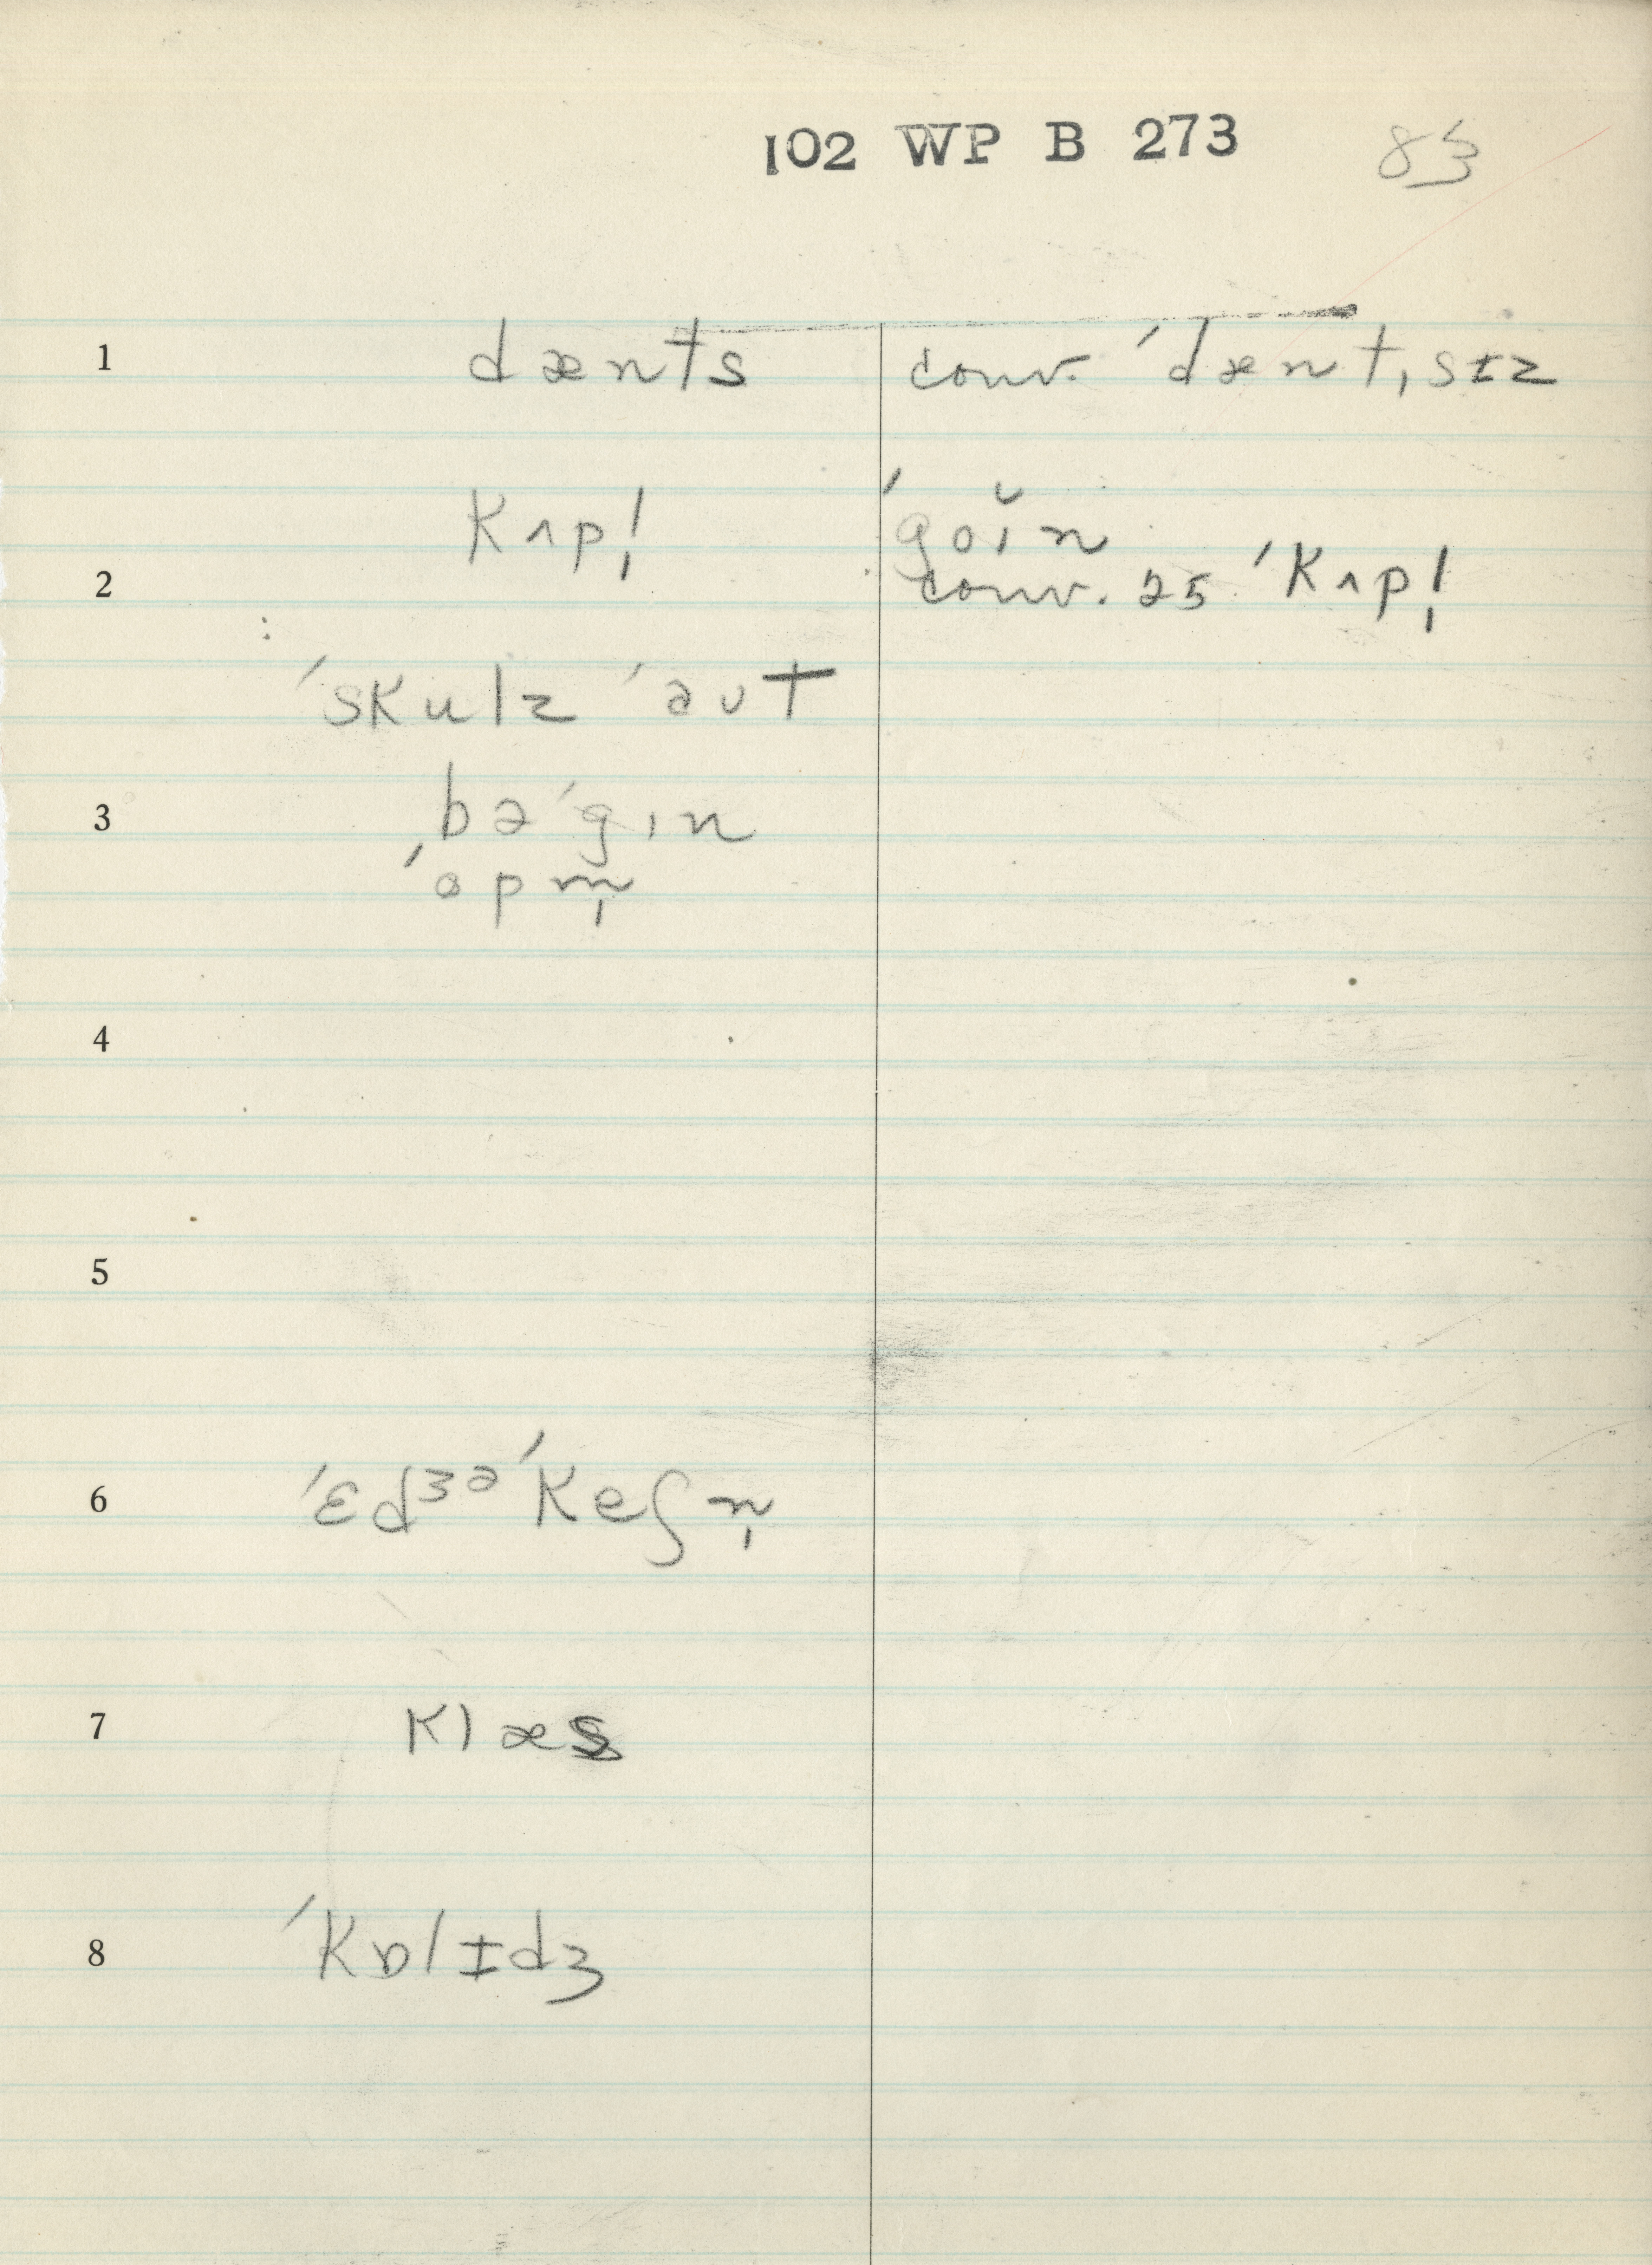 102 WP B 273 83
1 dænts conv. ˈdænt,sɪz
Kʌpl̩ ˈgoɪ̆n
2 conv. 25 ˈKʌpl̩
ˈsKulz ˈaʊt
3 bəˈgɪn
ˈopm̩
4
5
6 ˈɛdʒəˈKeʃn̩
7 Klæs
8 ˈKɒlɪdʒ